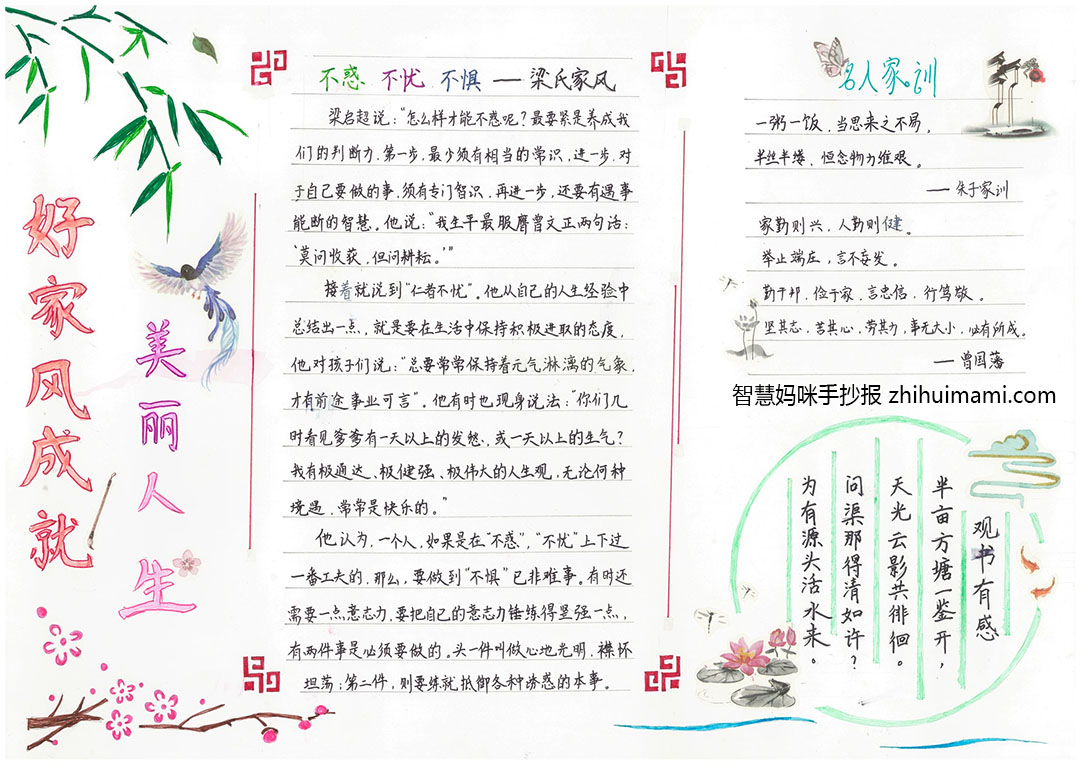 好家风成就
美丽人生
不惑 不忧 不惧 — 梁氏家风
梁启超说：“怎么样才能不惑呢？最要紧是养成我
们的判断力，第一步，最少须有相当的常识，进一步，对
于自己要做的事，须有专门智识，再进一步，还要有遇事
能断的智慧。他说：“我生平最服膺曾文正两句话：
‘莫问收获，但问耕耘。’”
接着就说到“仁者不忧”。他从自己的人生经验中
总结出一点，就是要在生活中保持积极进取的态度，
他对孩子们说：“总要常常保持着元气淋漓的气象，
才有前途事业可言”。他有时也现身说法：“你们几
时看见爹爹有一天以上的发愁，或一天以上的生气？
我有极通达、极健强、极伟大的人生观，无论何种
境遇，常常是快乐的。”
他认为，一个人，如果是在“不惑”，“不忧”上下过
一番工夫的，那么，要做到“不惧”已非难事。有时还
需要一点意志力，要把自己的意志力锤练得坚强一点，
有两件事是必须要做的。头一件叫做心地光明，襟怀
坦荡；第二件，则要练就抵御各种诱惑的本事。
名人家训
一粥一饭，当思来之不易，
半丝半缕，恒念物力维艰。
— 朱子家训
家勤则兴，人勤则健。
举止端庄，言不妄发。
勤于邦，俭于家，言忠信，行笃敬。
坚其志，苦其心，劳其力，事无大小，必有所成。
— 曾国藩
智慧妈咪手抄报 zhihuimami.com
观书有感
半亩方塘一鉴开，
天光云影共徘徊。
问渠那得清如许？
为有源头活水来。